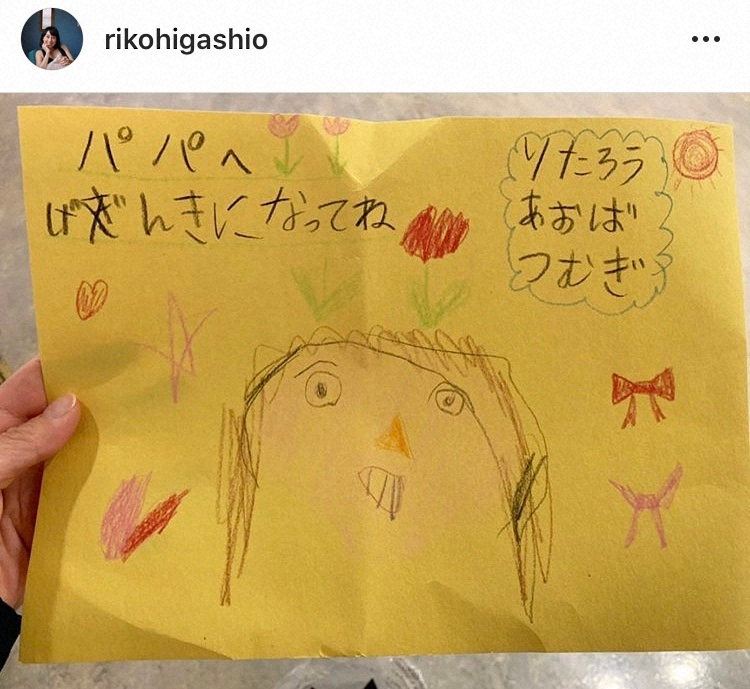 rikohigashio
パパへ
げんきになってね
りたろう
あおば
つむぎ